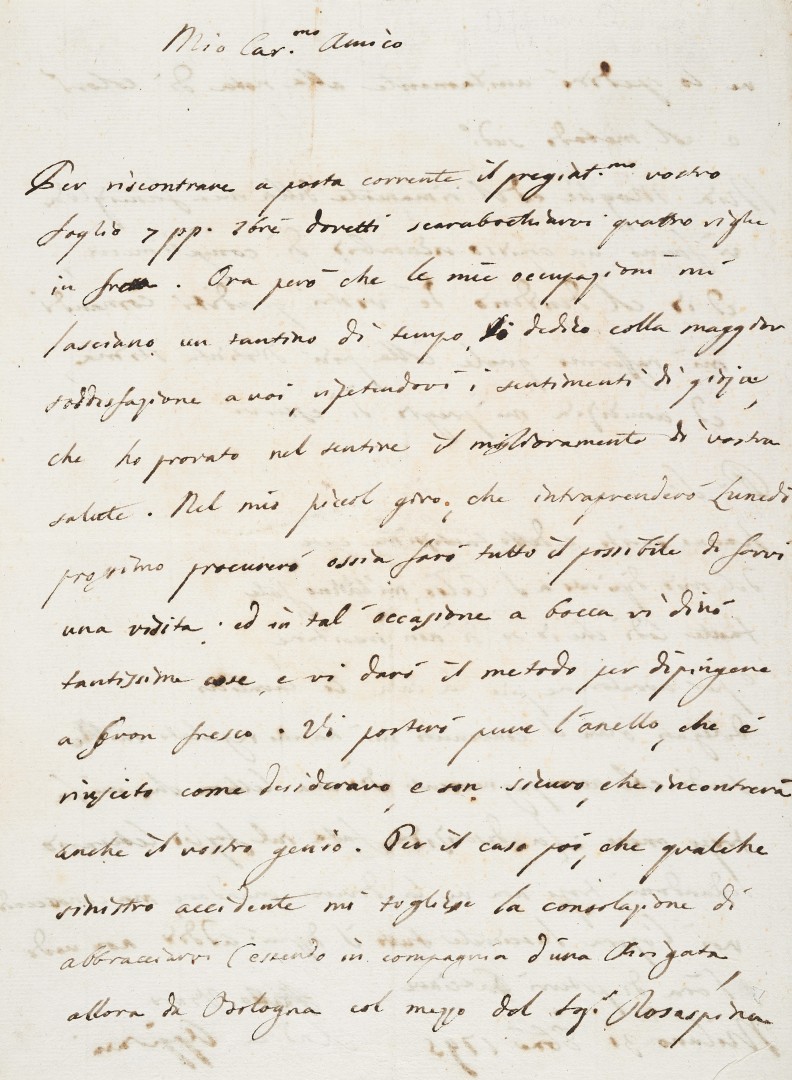 Mio Car.mo Amico
Per riscontrare a posta corrente il pregiat.mo vostro
foglio 7 pp. 7bre dovetti scarabochiarvi quattro righe
in fretta. Ora però che le mie occupazioni mi
lasciano un tantino di tempo, lo dedico colla maggior
soddisfazione a voi, ripetendovi i sentimenti di gioja,
che ho provato nel sentire il miglioramento di vostra
salute. Nel mio piccol giro, che intraprenderò Lunedì
prossimo procurerò ossia farò tutto il possibile di farvi
una visita. ed in tal occasione a bocca vi dirò
tantissime cose, e vi darò il metodo per dipingere
a buon fresco. Vi porterò pure l'anello, che è
riuscito come desideravo, e son sicuro, che incontrerà
anche il vostro genio. Per il caso poi, che qualche
sinistro accidente mi togliesse la consolazione di
abbracciarvi (essendo in compagnia d'una Brigata,
allora da Bologna col mezzo del Sig.r Rosaspina